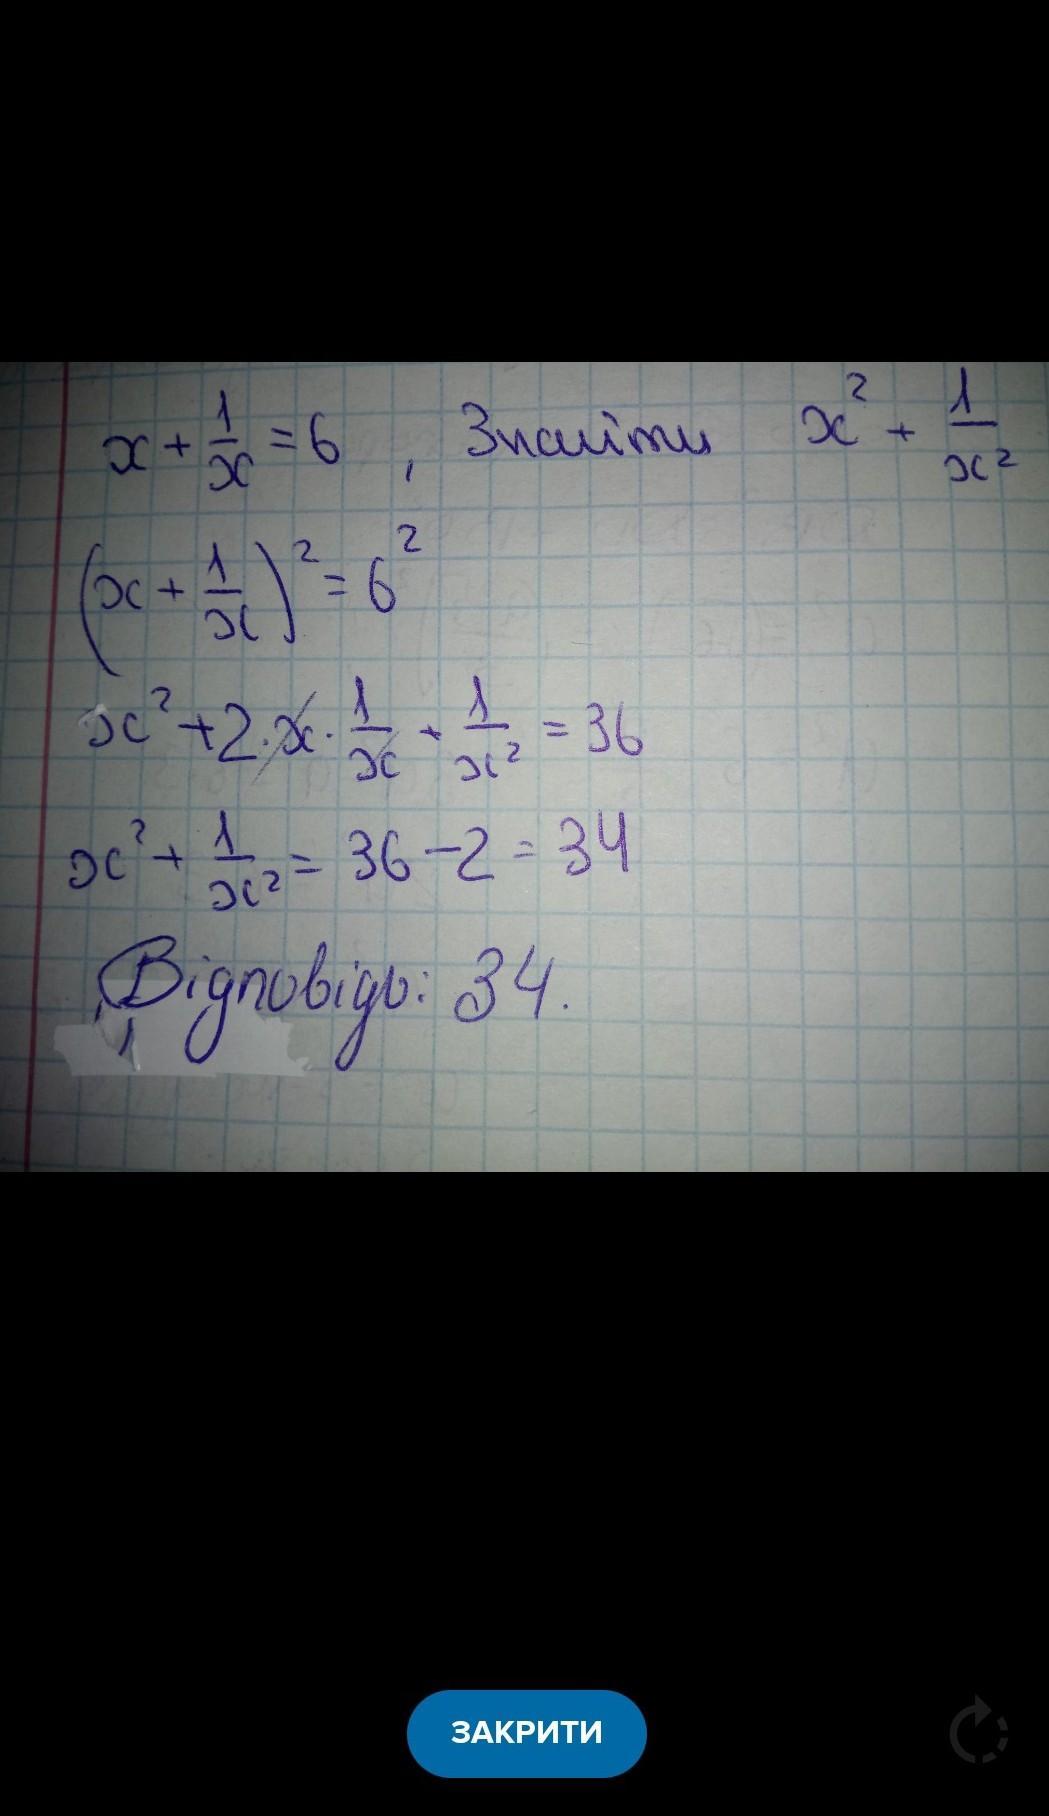 x + 1/x = 6 , Знайти x² + 1/x²
(x + 1/x)² = 6²
x² + 2·x·1/x + 1/x² = 36
x² + 1/x² = 36 - 2 = 34
Відповідь: 34.
ЗАКРИТИ